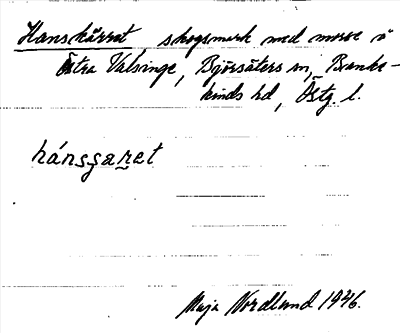 Hanskärret skogsmark med mosse å
Östra Valsinge, Björsäters sn, Banke-
kinds hd, Östg. l.
hánsʂaret
Maja Nordlund 1946.